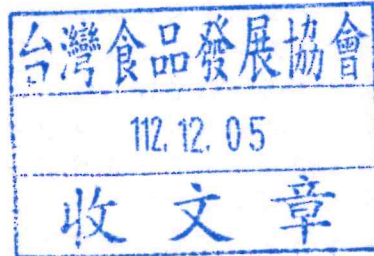 台灣食品發展協會
112.12.05
收文章